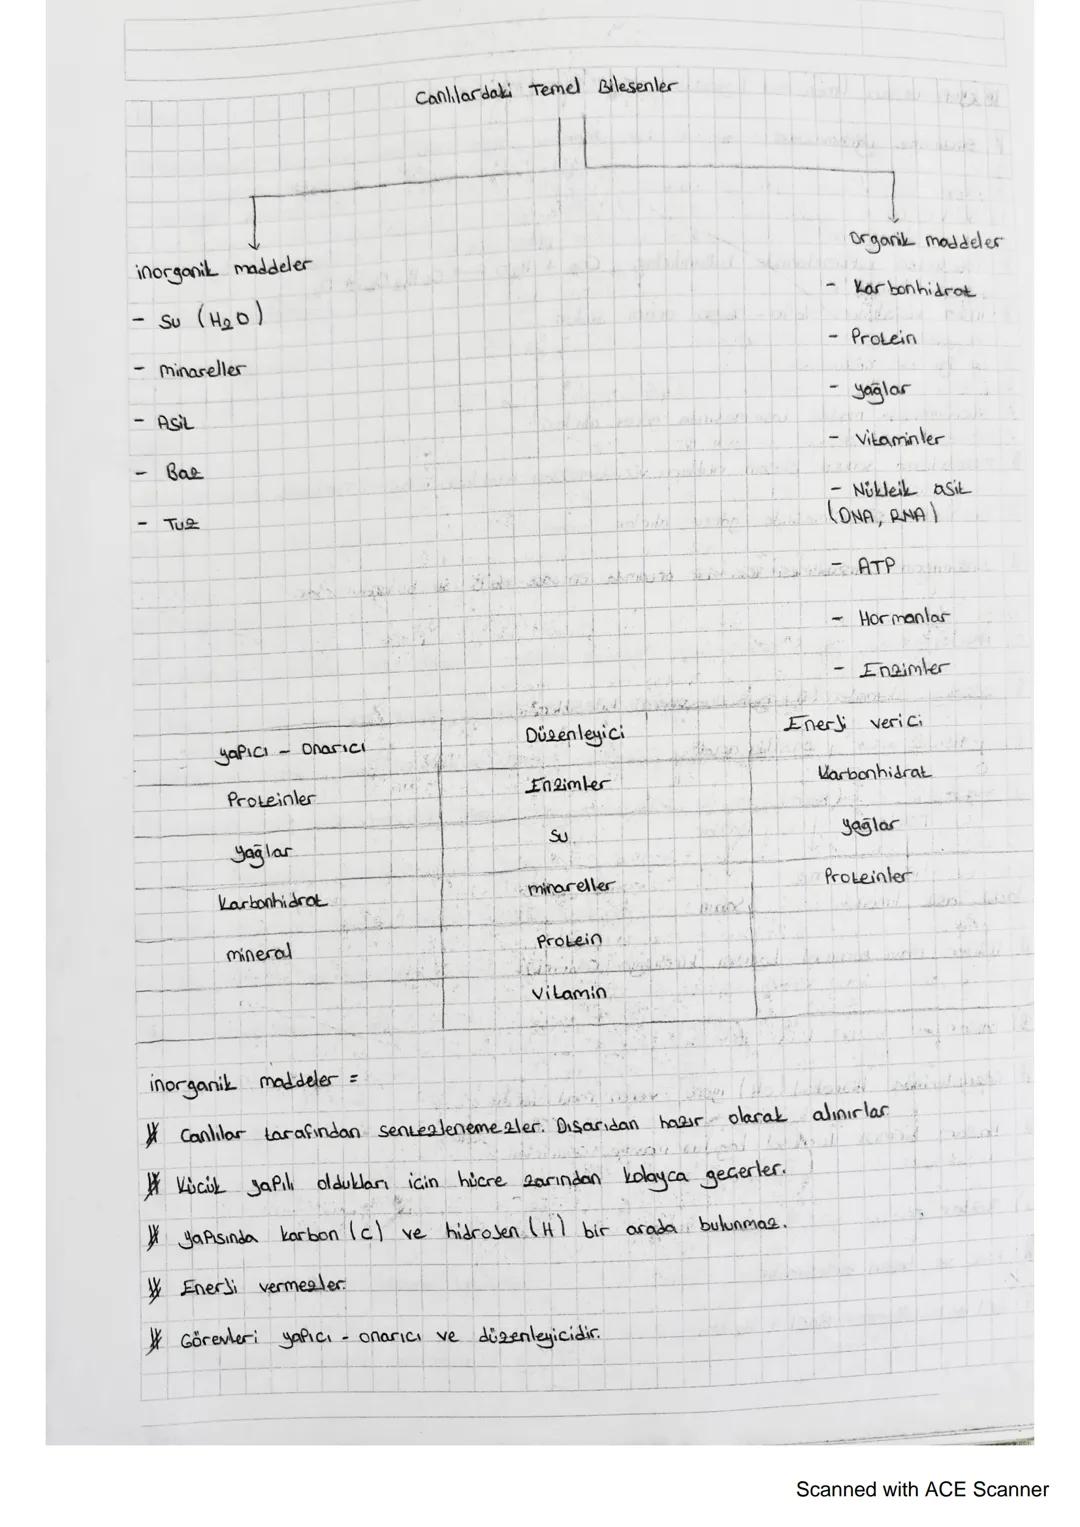 Canlılardaki Temel Bileşenler
inorganik maddeler
- Su (H2O)
- minareller
- Asit
- Baz
- Tuz
Organik maddeler
- Karbonhidrat
- Protein
- yağlar
- Vitaminler
- Nükleik asit
(DNA, RNA)
- ATP
- Hormanlar
- Enzimler
yapıcı - Onarıcı
Proteinler
yağlar
Karbonhidrat
mineral
Düzenleyici
Enzimler
Su
minareller
Protein
vitamin
Enerji verici
Karbonhidrat
yağlar
Proteinler
inorganik maddeler =
* Canlılar tarafından sentezlenemezler. Dışarıdan hazır olarak alınırlar
* Kücük yapılı oldukları icin hücre zarından kolayca gecerler.
* yapısında karbon (c) ve hidrojen (H) bir arada bulunmaz.
* Enerji vermezler.
* Görevleri yapıcı - onarıcı ve düzenleyicidir.
Scanned with ACE Scanner